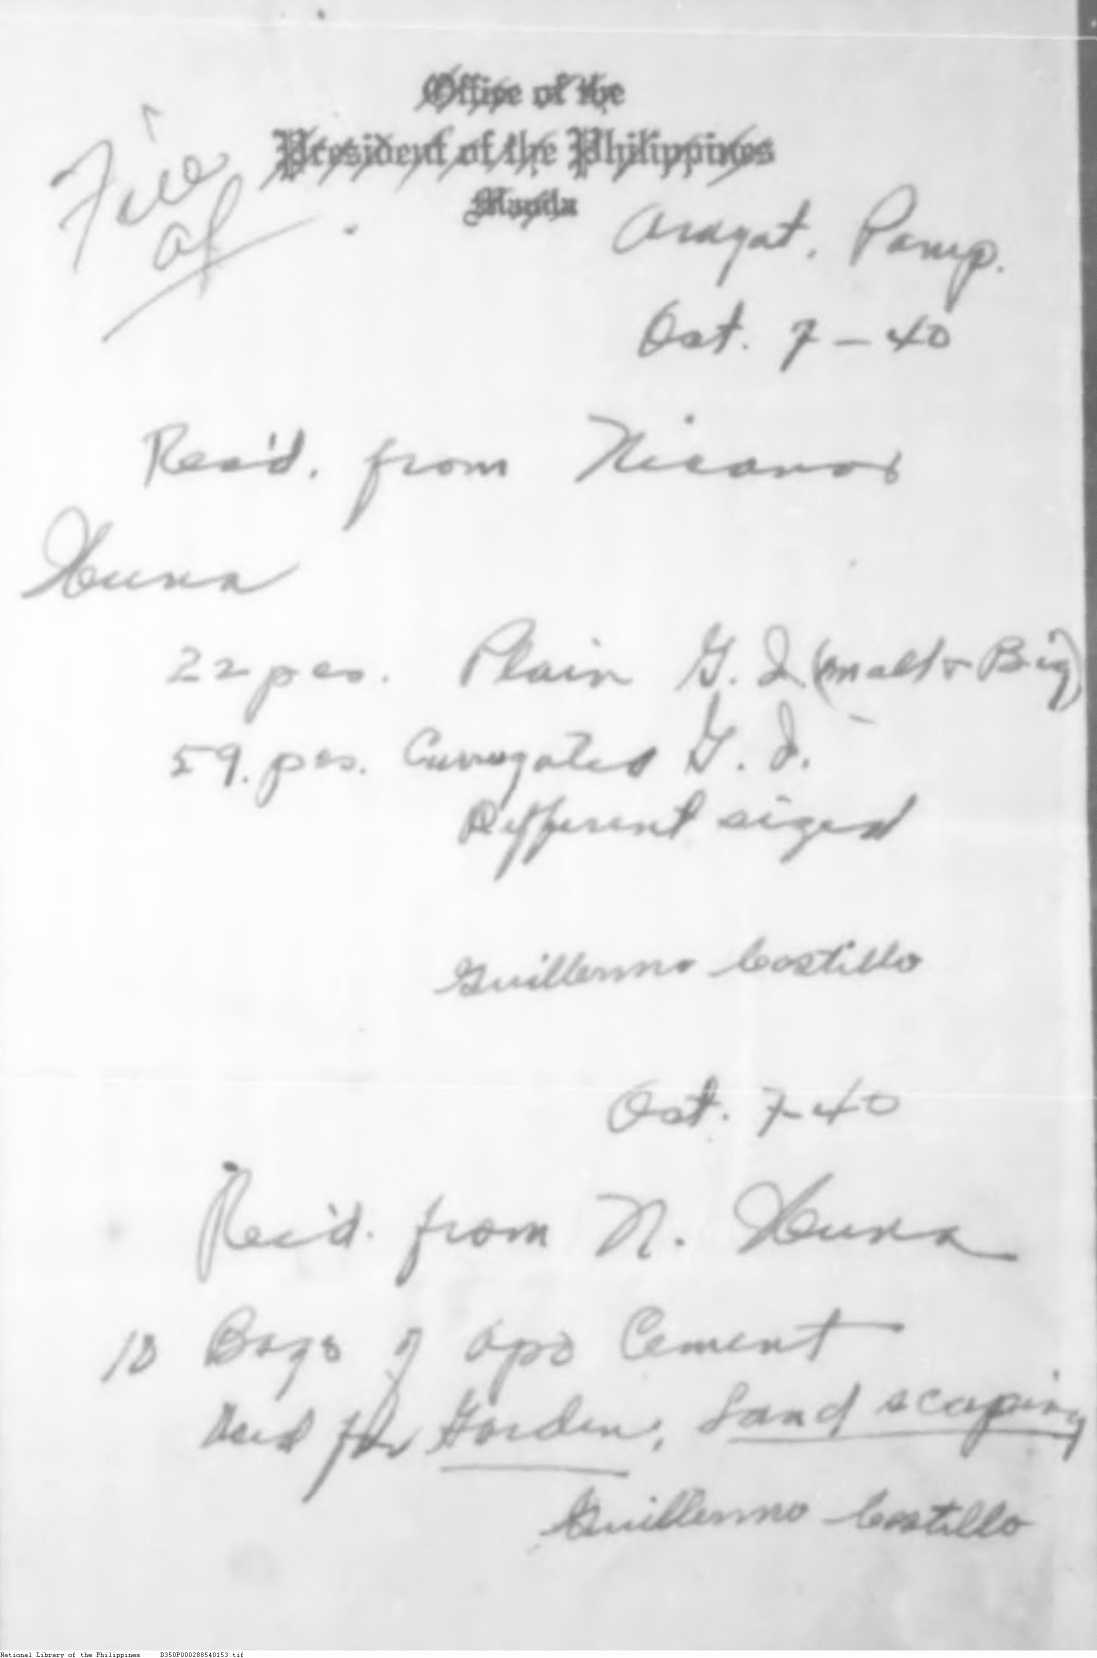 Office of the
President of the Philippines
Manila
File
Arayat, Pamp.
Oct. 7-40
Rec'd. from Nicanor
Luna
22 pcs. Plain G. I. (mall & Big)
59. pcs. Currugated G. I.
Different sized
Guillermo Costillo
Oct. 7-40
Rec'd. from N. Luna
18 Bags of Apo Cement
Used for Garden, Landscaping
Guillermo Costillo
National Library of the Philippines D350P000288540153.tif